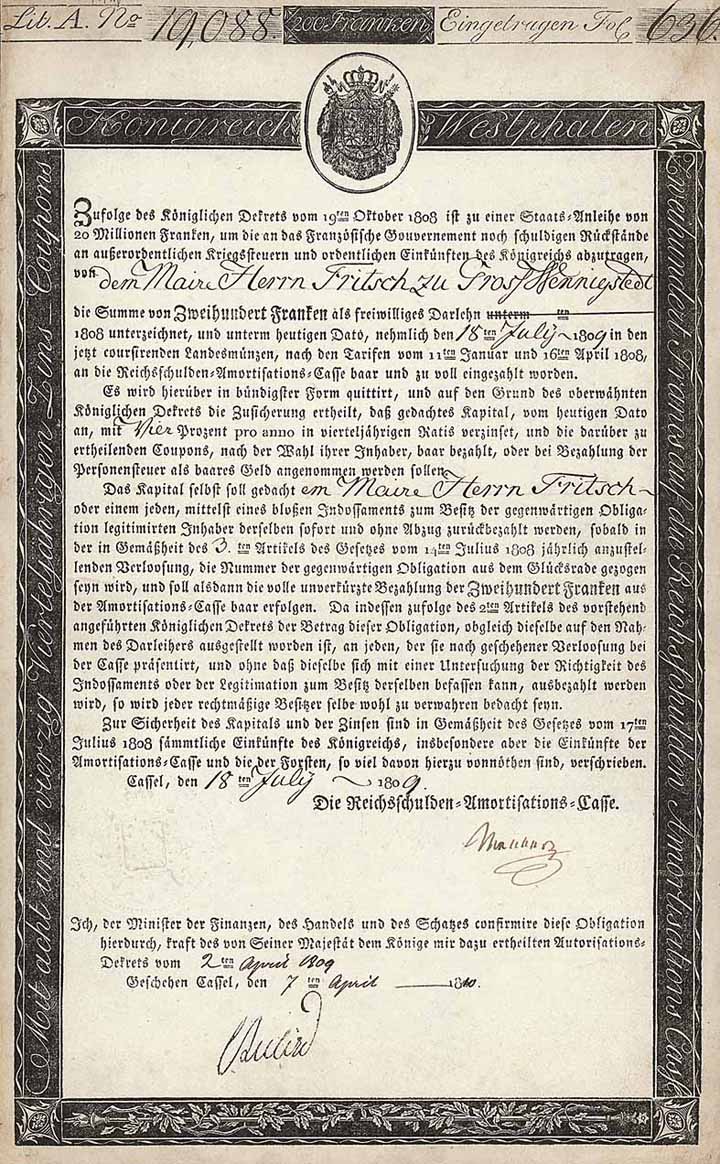 Lit. A. No 19,088. 200 Franken Eingetragen Fol. 636.
Königreich Westphalen
Mit acht und vierzig Vierteljährigen Zins-Coupons
Zweihundert Francs auf die Reichsschulden Amortisations Casse
Zufolge des Königlichen Dekrets vom 19ten Oktober 1808 ist zu einer Staats-Anleihe von
20 Millionen Franken, um die an das Französische Gouvernement noch schuldigen Rückstände
an außerordentlichen Kriegssteuern und ordentlichen Einkünften des Königreichs abzutragen,
von dem Maire Herrn Fritsch zu Gross Wennigstedt
die Summe von Zweihundert Franken als freiwilliges Darlehn unterm ten
1808 unterzeichnet, und unterm heutigen Dato, nehmlich den 18ten July 1809 in den
jetzt coursirenden Landesmünzen, nach den Tarifen vom 11ten Januar und 16ten April 1808,
an die Reichsschulden-Amortisations-Casse baar und zu voll eingezahlt worden.
Es wird hierüber in bündigster Form quittirt, und auf den Grund des oberwähnten
Königlichen Dekrets die Zusicherung ertheilt, daß gedachtes Kapital, vom heutigen Dato
an, mit Vier Prozent pro anno in vierteljährigen Ratis verzinset, und die darüber zu
ertheilenden Coupons, nach der Wahl ihrer Inhaber, baar bezahlt, oder bei Bezahlung der
Personensteuer als baares Geld angenommen werden sollen.
Das Kapital selbst soll gedacht em Maire Herrn Fritsch
oder einem jeden, mittelst eines bloßen Indossaments zum Besitz der gegenwärtigen Obliga-
tion legitimirten Inhaber derselben sofort und ohne Abzug zurückbezahlt werden, sobald in
der in Gemäßheit des 3.ten Artikels des Gesetzes vom 14ten Julius 1808 jährlich anzustel-
lenden Verloosung, die Nummer der gegenwärtigen Obligation aus dem Glücksrade gezogen
seyn wird, und soll alsdann die volle unverkürzte Bezahlung der Zweihundert Franken aus
der Amortisations-Casse baar erfolgen. Da indessen zufolge des 2ten Artikels des vorstehend
angeführten Königlichen Dekrets der Betrag dieser Obligation, obgleich dieselbe auf den Nah-
men des Darleihers ausgestellt worden ist, an jeden, der sie nach geschehener Verloosung bei
der Casse präsentirt, und ohne daß dieselbe sich mit einer Untersuchung der Richtigkeit des
Indossaments oder der Legitimation zum Besitz derselben befassen kann, ausbezahlt werden
wird, so wird jeder rechtmäßige Besitzer selbe wohl zu verwahren bedacht seyn.
Zur Sicherheit des Kapitals und der Zinsen sind in Gemäßheit des Gesetzes vom 17ten
Julius 1808 sämmtliche Einkünfte des Königreichs, insbesondere aber die Einkünfte der
Amortisations-Casse und die der Forsten, so viel davon hierzu vonnöthen sind, verschrieben.
Cassel, den 18ten July 1809.
Die Reichsschulden-Amortisations-Casse.
Ich, der Minister der Finanzen, des Handels und des Schatzes confirmire diese Obligation
hierdurch, kraft des von Seiner Majestät dem Könige mir dazu ertheilten Autorisations-
Dekrets vom 2ten April 1809
Geschehen Cassel, den 7ten April 1810.